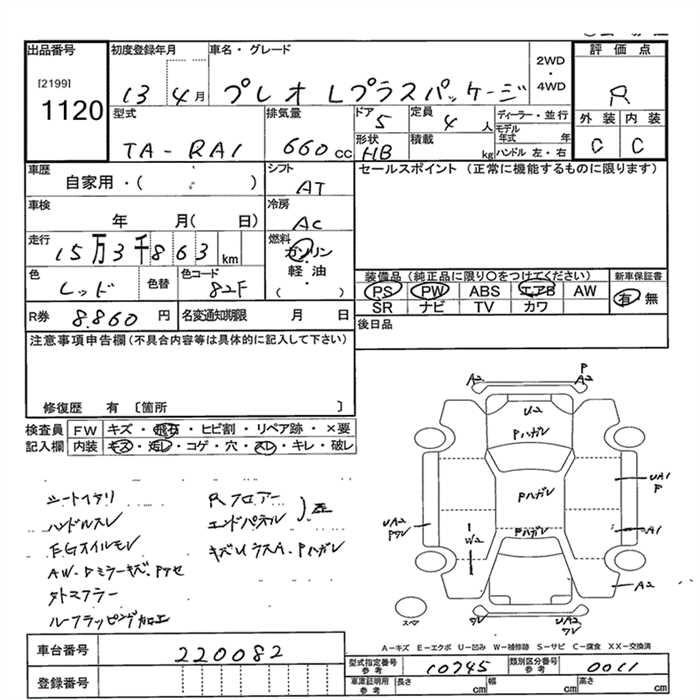 出品番号 初度登録年月 車名・グレード 2WD・4WD 評価点
[2199]
1120 13 4月 プレオ Lプラスパッケージ R
型式 排気量 ドア 定員 ディーラー・並行 外装 内装
TA-RA1 660cc 5 4人 モデル年式 年 C C
形状 HB 積載 kg ハンドル 左・右
車歴 シフト セールスポイント(正常に機能するものに限ります)
自家用・( ) AT
車検 冷房
年 月( 日) AC
走行 燃料
15万3千863km ガソリン・軽油・( )
色 色替 色コード 装備品(純正品に限り〇をつけてください) 新車保証書
レッド 82F PS PW ABS エアB AW 有 無
R券 8.860円 名変通知期限 月 日 SR ナビ TV カワ
注意事項申告欄(不具合内容等は具体的に記入して下さい) 後日品
修復歴 有 〔箇所 〕
検査員記入欄 FW キズ・飛石・ヒビ割・リペア跡・×要
内装 キズ・汚レ・コゲ・穴・スレ・キレ・破レ
シートヘタリ Rフロアー
ハンドルスレ エンドパネル
EGオイルモレ
AW・Dミラーキズ・Pワセ
タトスフラー
ルーフラッピング加工
P
A2 A2
U2
Pハガレ
Pハガレ
UA1
P
UA2
Pワレ
W2
Pハガレ
A1
A2
スペア
UA2
ワレ
ワレ
A-キズ E-エクボ U-凹み W-補修跡 S-サビ C-腐食 XX-交換済
車台番号 220082
型式指定番号参考 10745 類別区分番号参考 0011
登録番号 車庫証明用参考 長さ cm 幅 cm 高さ cm